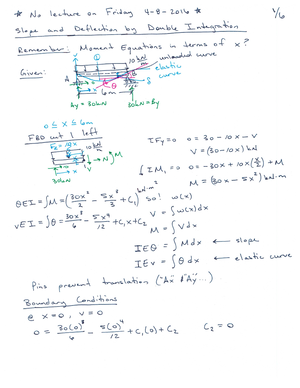 * No lecture on Friday 4-8-2016 * 1/6
Slope and Deflection by Double Integration
Remember: Moment Equations in terms of x?
Given:
10 kN/m
unloaded curve
elastic curve
A
B
θ
x
6m
Ay = 30kN
30kN = By
0 ≤ x ≤ 6m
FBD cut 1 left
10 kN/m
N
M
V
x
30kN
ΣFy = 0 0 = 30 - 10x - V
V = (30 - 10x) kN
ΣM₁ = 0 0 = -30x + 10x(x/2) + M
M = (30x - 5x²) kN·m
θEI = ∫M = (30x²/2 - 5x³/3 + C₁) kN·m²
vEI = ∫θ = 30x³/6 - 5x⁴/12 + C₁x + C₂
So! w(x)
V = ∫w(x)dx
M = ∫V dx
IEθ = ∫M dx ← slope
IEv = ∫θ dx ← elastic curve
Pins prevent translation ("Ax & Ay...")
Boundary Conditions
@ x=0, v=0
0 = 30(0)³/6 - 5(0)⁴/12 + C₁(0) + C₂ C₂ = 0